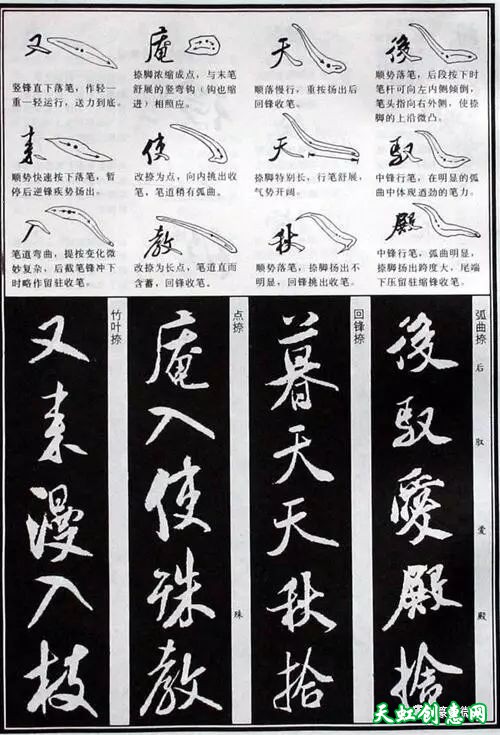 又
竖锋直下落笔，作轻一
重一轻运行，送力到底。
庵
捺脚浓缩成点，与末笔
舒展的竖弯钩（钩也缩
进）相照应。
天
顺落慢行，重按扬出后
回锋收笔。
後
顺势落笔，后段按下时
笔杆可向左内侧倾倒，
笔头指向右外侧，使捺
脚的上沿微凸。
来
顺势快速按下落笔，暂
停后逆锋疾势扬出。
使
改捺为点，向内挑出收
笔，笔道稍有弧曲。
天
捺脚特别长，行笔舒展，
气势开阔。
驭
中锋行笔，在明显的弧
曲中体现遒劲的笔力。
入
笔道弯曲，提按变化微
妙复杂，后截笔锋冲下
时略作留驻收笔。
教
改捺为长点，笔道直而
含蓄，回锋收笔。
秋
顺势落笔，捺脚扬出不
明显，回锋挑出收笔。
殿
中锋行笔，弧曲明显，
捺脚扬出跨度大，尾端
下压留驻缩锋收笔。
弧曲捺
后
驭
爱
殿
後驭愛殿捨
回锋捺
暮天天秋拾
点捺
殊
庵入使殊教
竹叶捺
又来漫入枝
天虹创意网